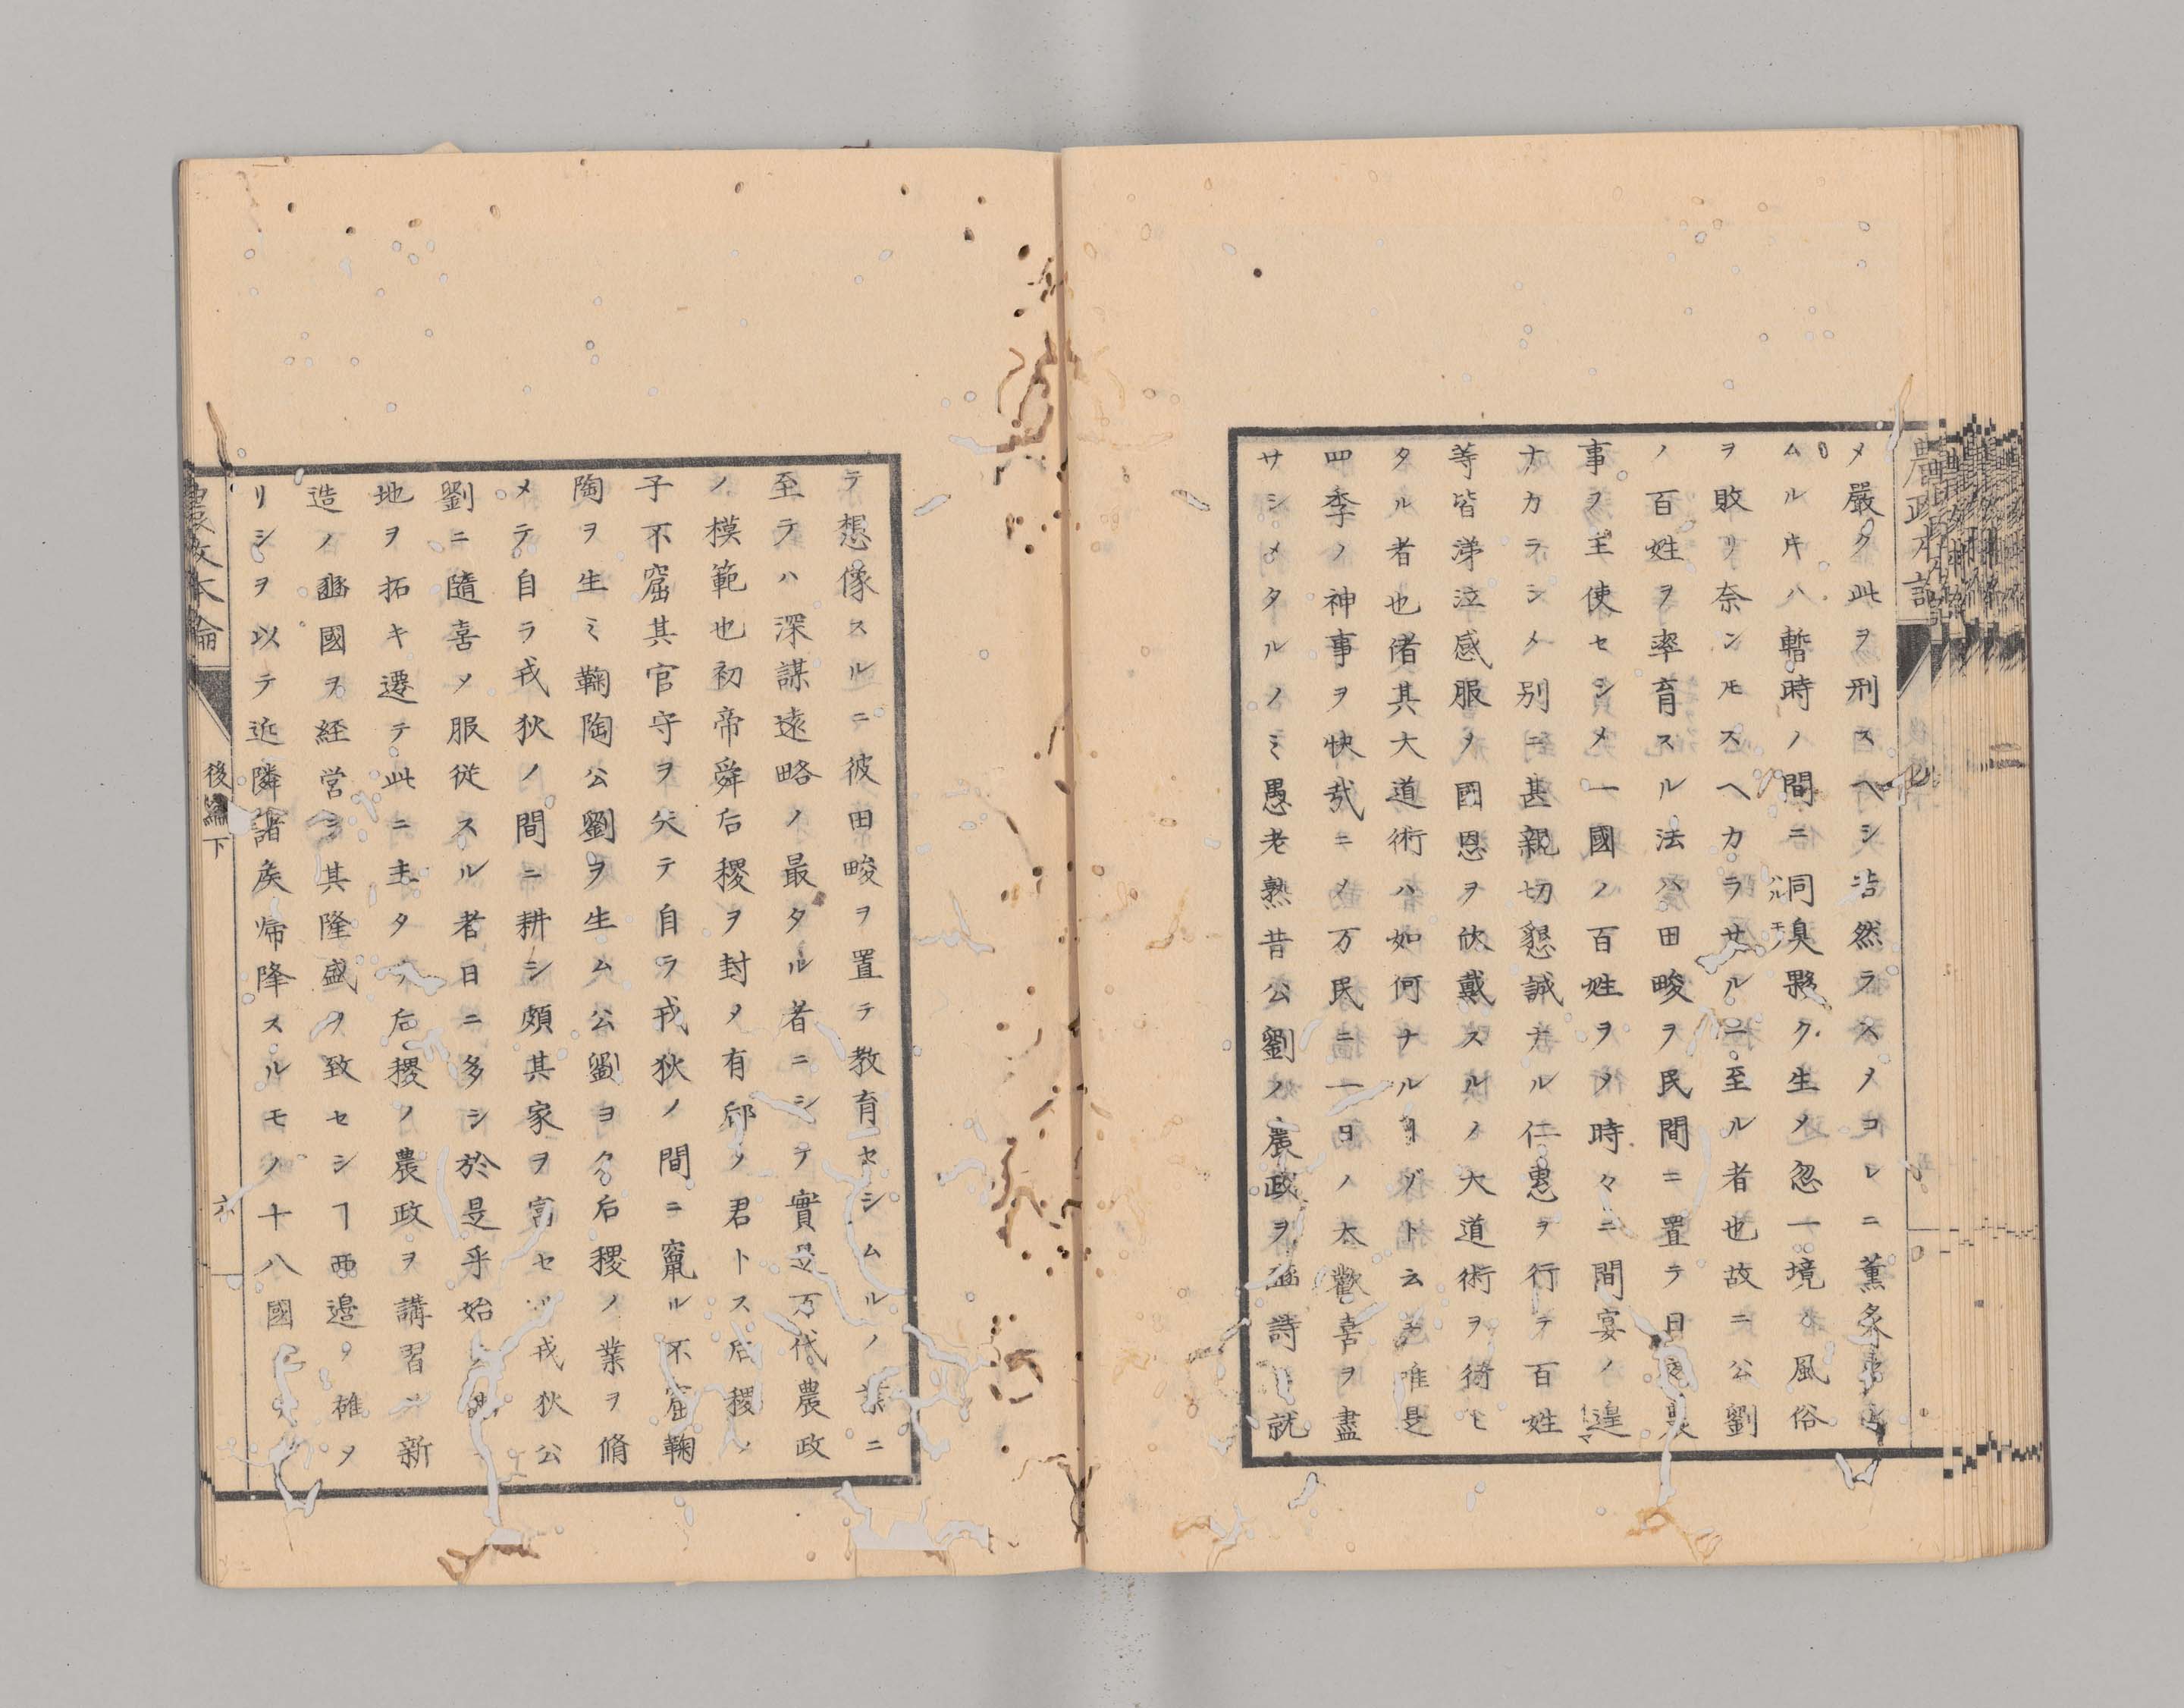 メ嚴ク此ヲ刑スヘシ沾然ラスメコレニ薫炙
ムル片ハ暫時ノ間ニ同臭夥ク生メ忽一境ノ風俗
ハルモノ
ヲ敗リ奈ン𪜈スヘカラサルニ至ル者也故ニ公劉
ノ百姓ヲ率育スル法ハ田畯ヲ民間ニ置テ日夜農
事ヲ主使セシメ一國ノ百姓ヲメ時々ニ間宴ノ遑
ナカラシメ別ニ甚親切懇誠ナル仁惠ヲ行テ百姓
等皆涕泣感服メ國恩ヲ欣戴スルノ大道術ヲ待ヒ
タル者也偖其大道術ハ如何ナルヿゾト云ニ唯是
四季ノ神事ヲ快哉ニメ万民ニ一日ノ大歡喜ヲ盡
サシメタルノミ愚老熟昔公劉ノ農政ヲ豳詩ニ就
テ想像スルニ彼田畯ヲ置テ教育セシムルノ業ニ
至テハ深謀遠略ノ最タル者ニシテ實是万代農政
ノ模範也初帝舜后稷ヲ封メ有邰ノ君トス后稷ノ
子不窋其官守ヲ失テ自ラ戎狄ノ間ニ竄ル不窋鞠
陶ヲ生ミ鞠陶公劉ヲ生ム公劉ヨク后稷ノ業ヲ脩
メテ自ラ戎狄ノ間ニ耕シ頗其家ヲ富セリ戎狄公
劉ニ隨喜メ服従スル者日ニ多シ於是乎始
地ヲ拓キ遷テ此ニ主タリ后稷ノ農政ヲ講習シ新
造ノ豳國ヲ経営シ其隆盛ヲ致セシヿ西邉ヲ雄メ
リシヲ以テ近隣諸矦帰降スルモノ十八國
農政本論
後編下
六